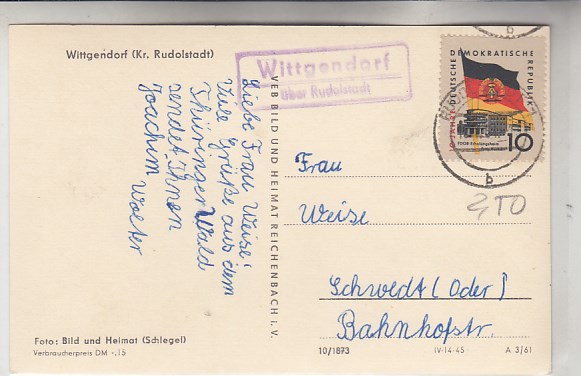 Wittgendorf (Kr. Rudolstadt)
Wittgendorf
über Rudolstadt
Liebe Frau Weise!
Viele Grüße aus dem
Thüringer Wald
sendet Ihnen
Joachim Wolter
VEB BILD UND HEIMAT REICHENBACH i. V.
10 JAHRE DEUTSCHE DEMOKRATISCHE REPUBLIK
FDGB-Erholungsheim
10
b
b
Frau
Weise
Schwedt (Oder)
Bahnhofstr.
2,50
Foto: Bild und Heimat (Schlegel)
Verbraucherpreis DM -.15
10/1873
IV-14-45
A 3/61